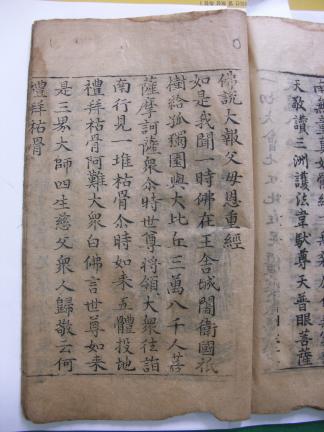 南無童真如
天敬讚三洲護法韋馱尊天普眼菩薩
佛說大報父母恩重經
如是我聞一時佛在王舍城闍衛國祇
樹給孤獨園與大比丘三萬八千人菩
薩摩訶薩衆尒時世尊将領大衆往詣
南行見一堆枯骨尒時如来五體投地
禮拜枯骨阿難大衆白佛言世尊如来
是三界大師四生慈父衆人歸敬云何
禮拜枯骨